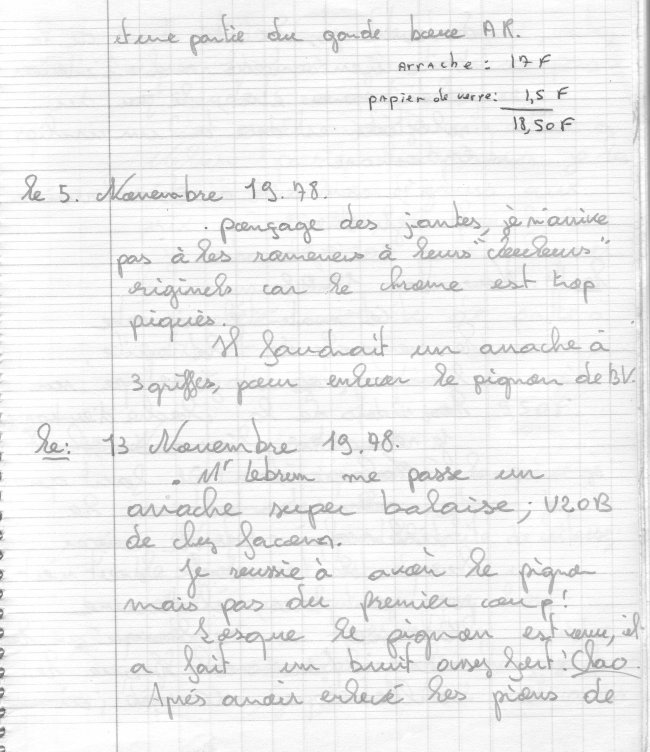 et une partie du garde boue AR.
Arrache : 17 F
papier de verre : 1,5 F
18,50 F
le 5. Novembre 19.78.
. ponçage des jantes, je n'arrive
pas à les ramener à leurs "couleurs"
originels car le chrome est trop
piqués.
Il faudrait un arrache à
3 griffes, pour enlever le pignon de BV.
le : 13 Novembre 19.78.
. Mr Lebrun me passe un
arrache super balaise ; U20B
de chez Facom.
Je reussie à avoir le pignon
mais pas du premier coup !
Lorsque le pignon est venu, il
a fait un bruit assez fort ! Clao.
Après avoir enlevé les pions de